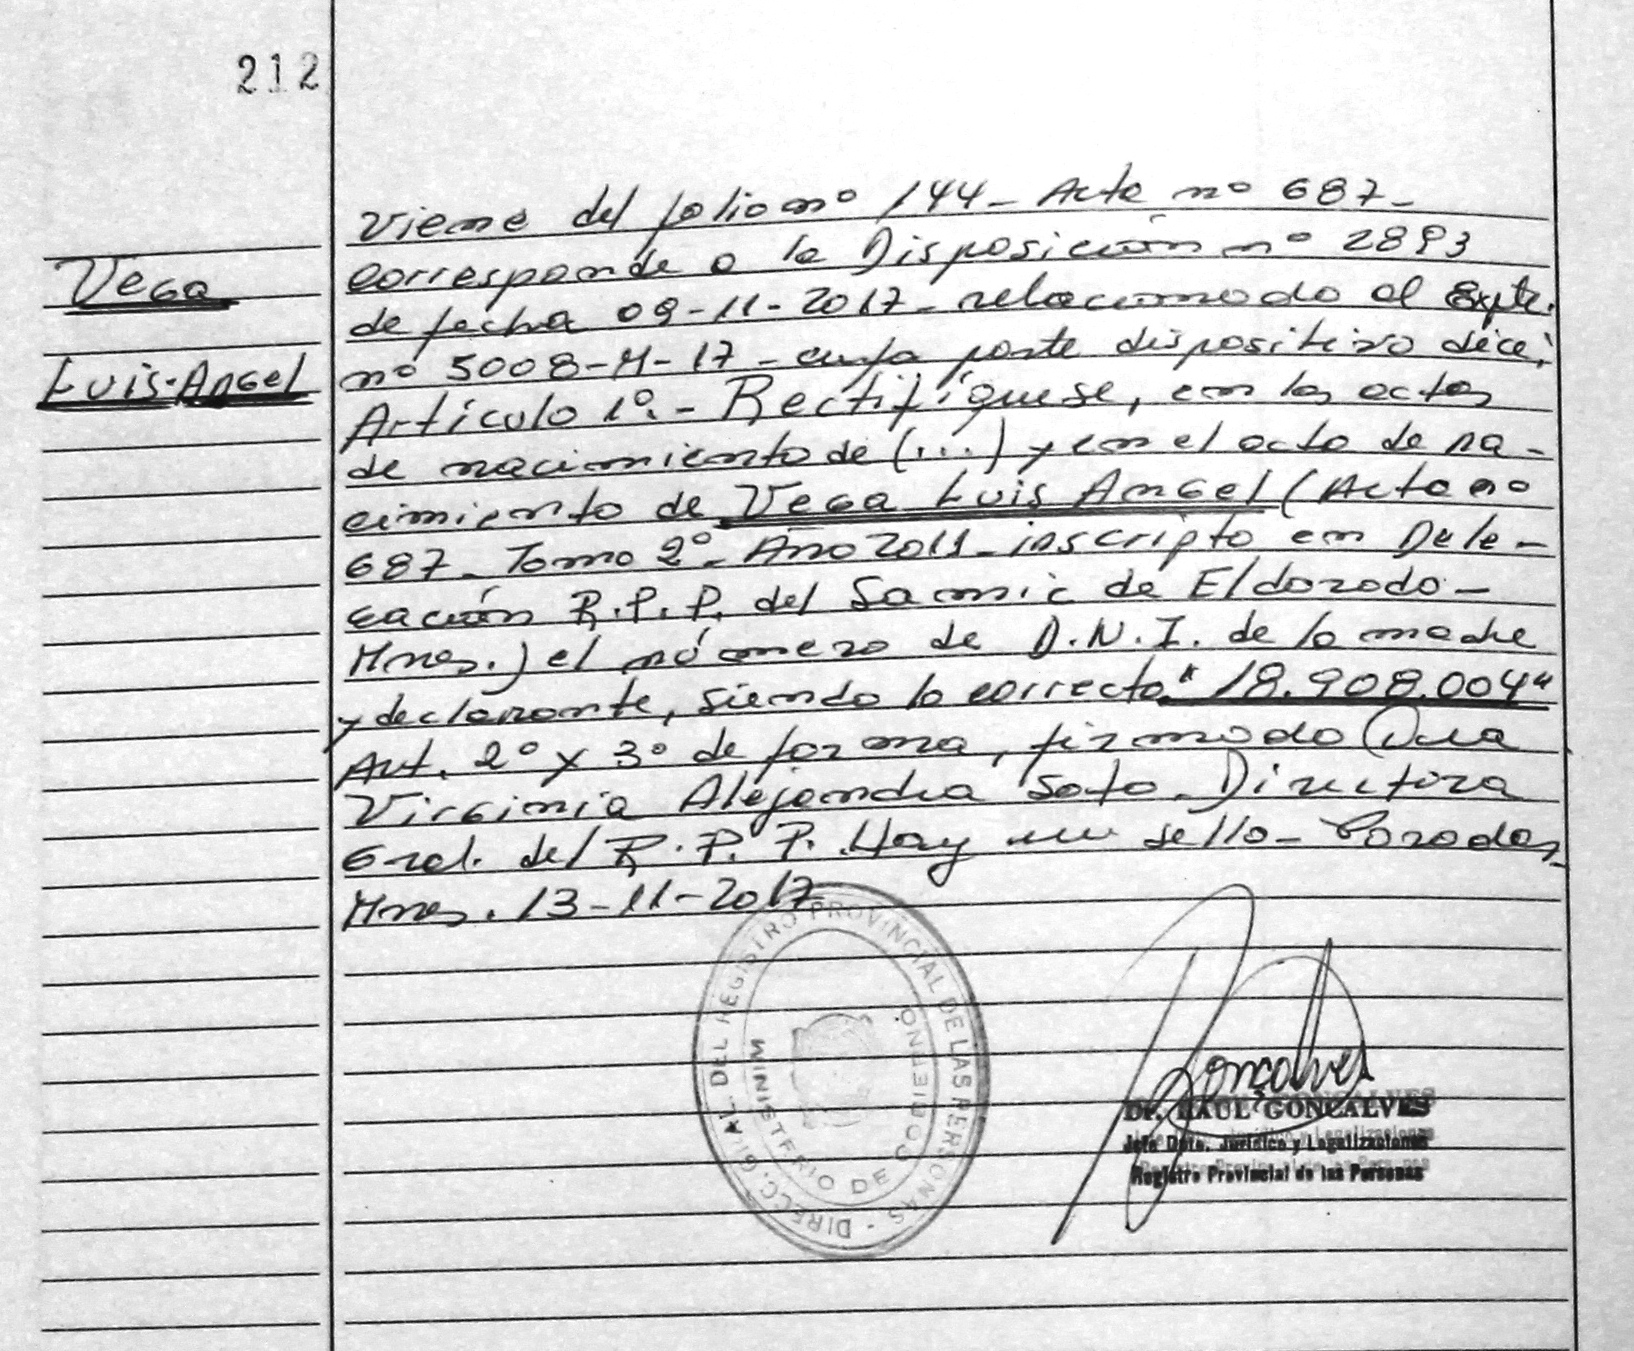 212
Vega
Luis Angel
Viene del folio nº 144 - Acta nº 687 -
corresponde a la Disposición nº 2893
de fecha 09-11-2017 - relacionado al Expte.
nº 5008-M-17 - cuya parte dispositiva dice:
Artículo 1º.- Rectifíquese, en las actas
de nacimiento de (...) y en el acta de na-
cimiento de Vega Luis Angel (Acta nº
687 - Tomo 2º - Año 2011 - inscripto en Dele-
gación R.P.P. del Samic de Eldorado -
Mnes.) el número de D.N.I. de la madre
y declarante, siendo lo correcto "18.908.004"
Art. 2º y 3º de forma, firmado Dra
Virginia Alejandra Soto - Directora
Gral. del R.P.P. Hay un sello - Posadas,
Mnes. 13-11-2017
DIRECC. GRAL. DEL REGISTRO PROVINCIAL DE LAS PERSONAS -
MINISTERIO DE GOBIERNO
Goncalves
Dr. RAUL GONCALVES
Jefe Dpto. Jurídico y Legalizaciones
Registro Provincial de las Personas